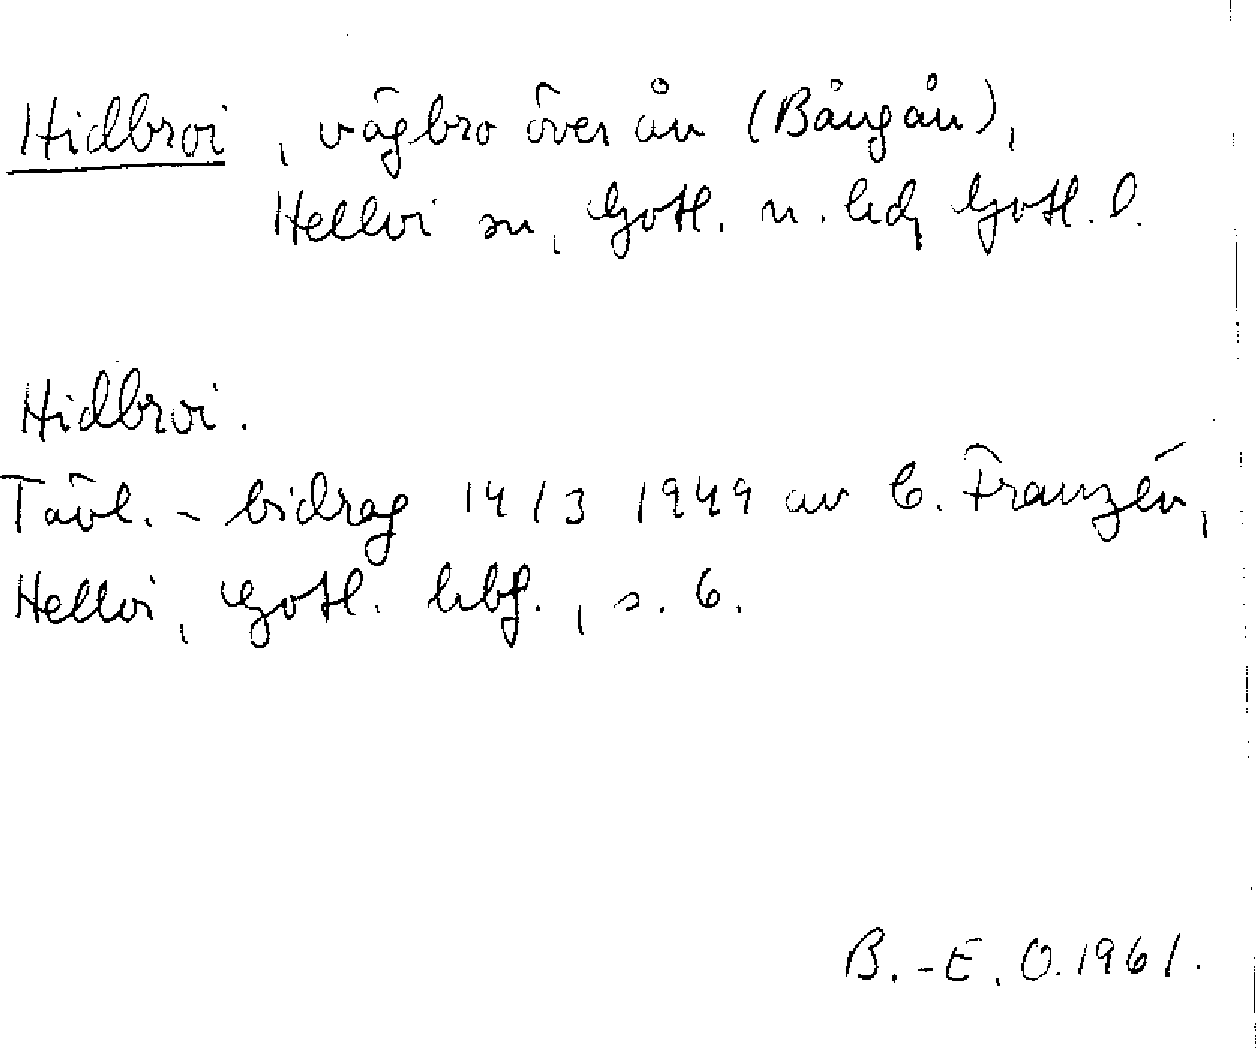 Hidbroi, vägbro över ån (Bångån),
Hellvi sn, Gotl. n. hd, Gotl. l.
Hidbroi.
Tävl. - bidrag 14/3 1949 av C. Franzén,
Hellvi, Gotl. hbf., s. 6.
B.-E. O. 1961.